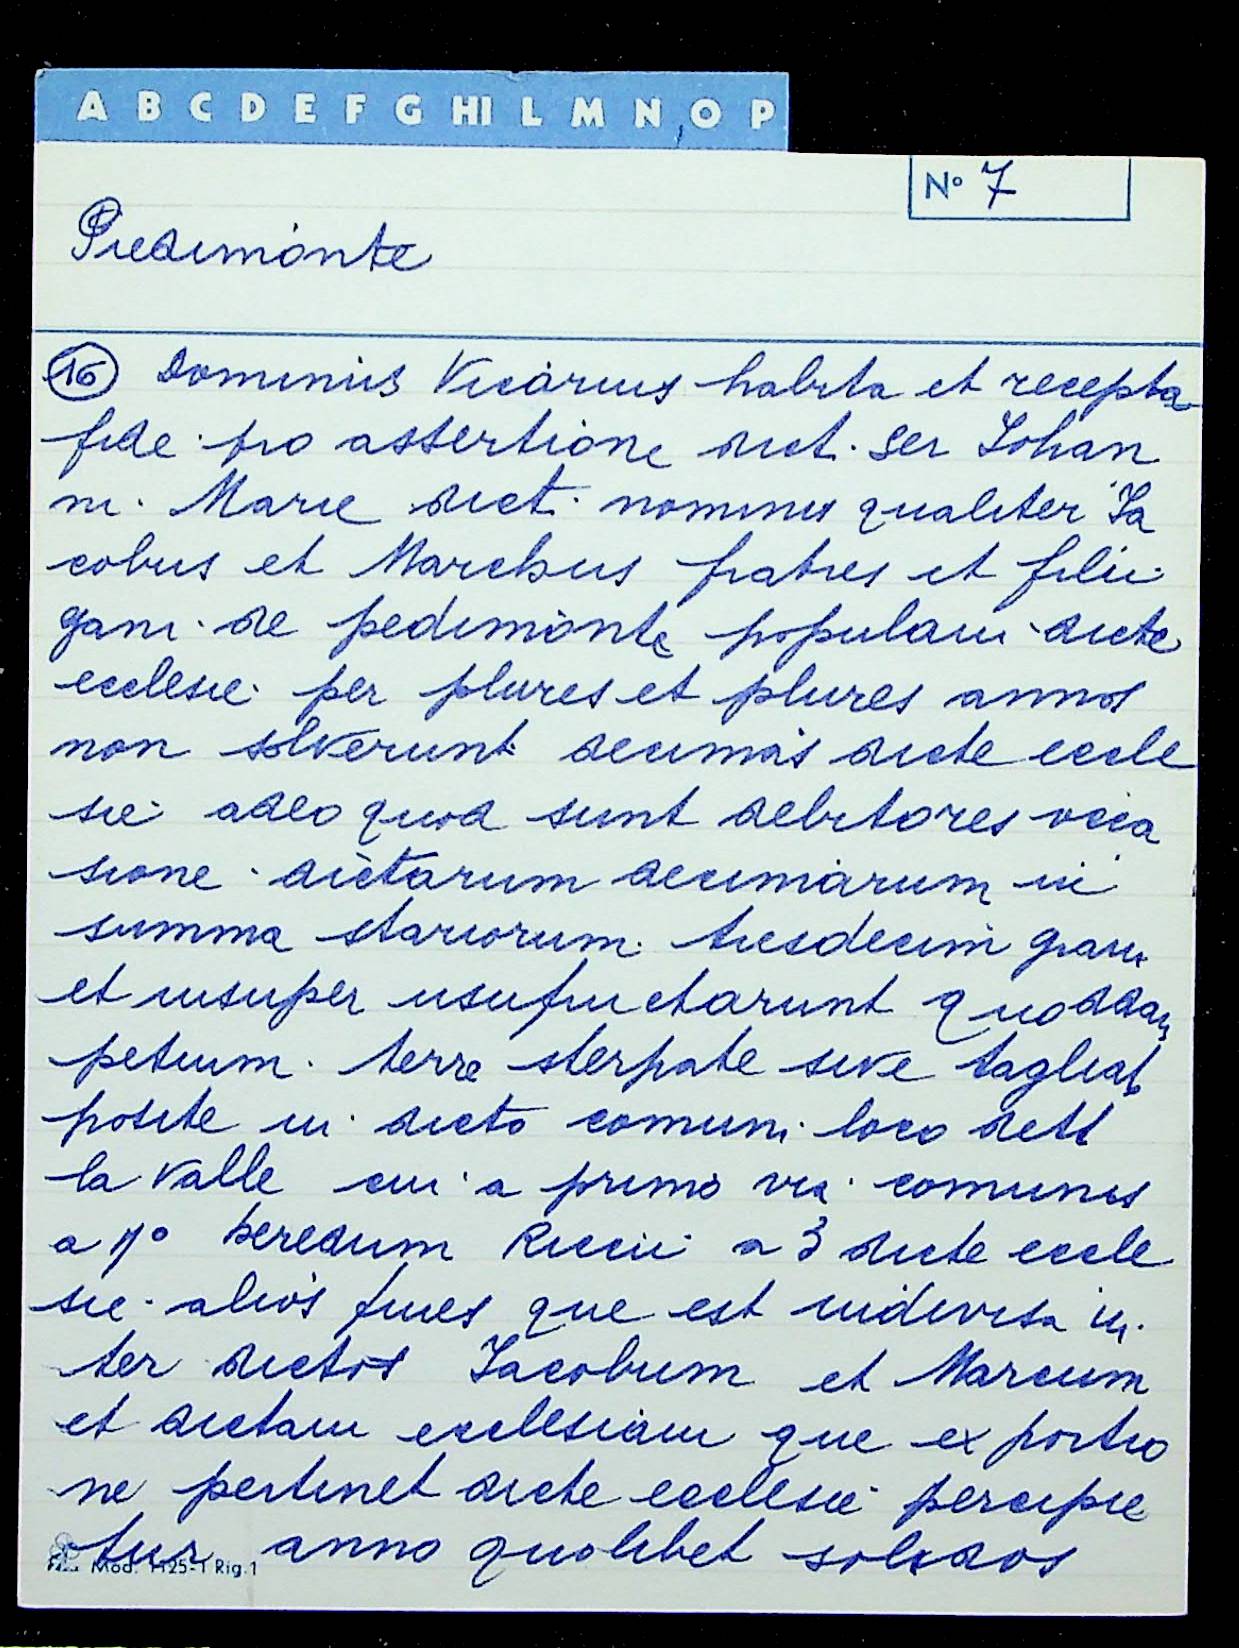 A B C D E F G HI L M N O P
N° 7
Piedimonte
16 Dominus Vicarius habita et recepta
fide pro assertione dict. ser Johan
ni. Marie dict. nominis qualiter Ja
cobus et Marchus fratres et filii
gani de pedimonte populani dicte
ecclesie per plures et plures annos
non solverunt decimas dicte eccle
sie adeo quod sunt debitores occa
sione dictarum decimarum in
summa stariorum tresdecim grani
et insuper usufructarunt quoddam
petium terre sterpate sive tagliat
posite in dicto comuni loco dett
la valle cui a primo via comunis
a heredum Riccii a 3 dicte eccle
sie alios fines que est indivisa in
ter dictos Jacobum et Marcum
et dictam ecclesiam que ex portio
ne pertinet dicte ecclesie percipie
tur anno quolibet solidos
Mod. 1125-1 Rig.1